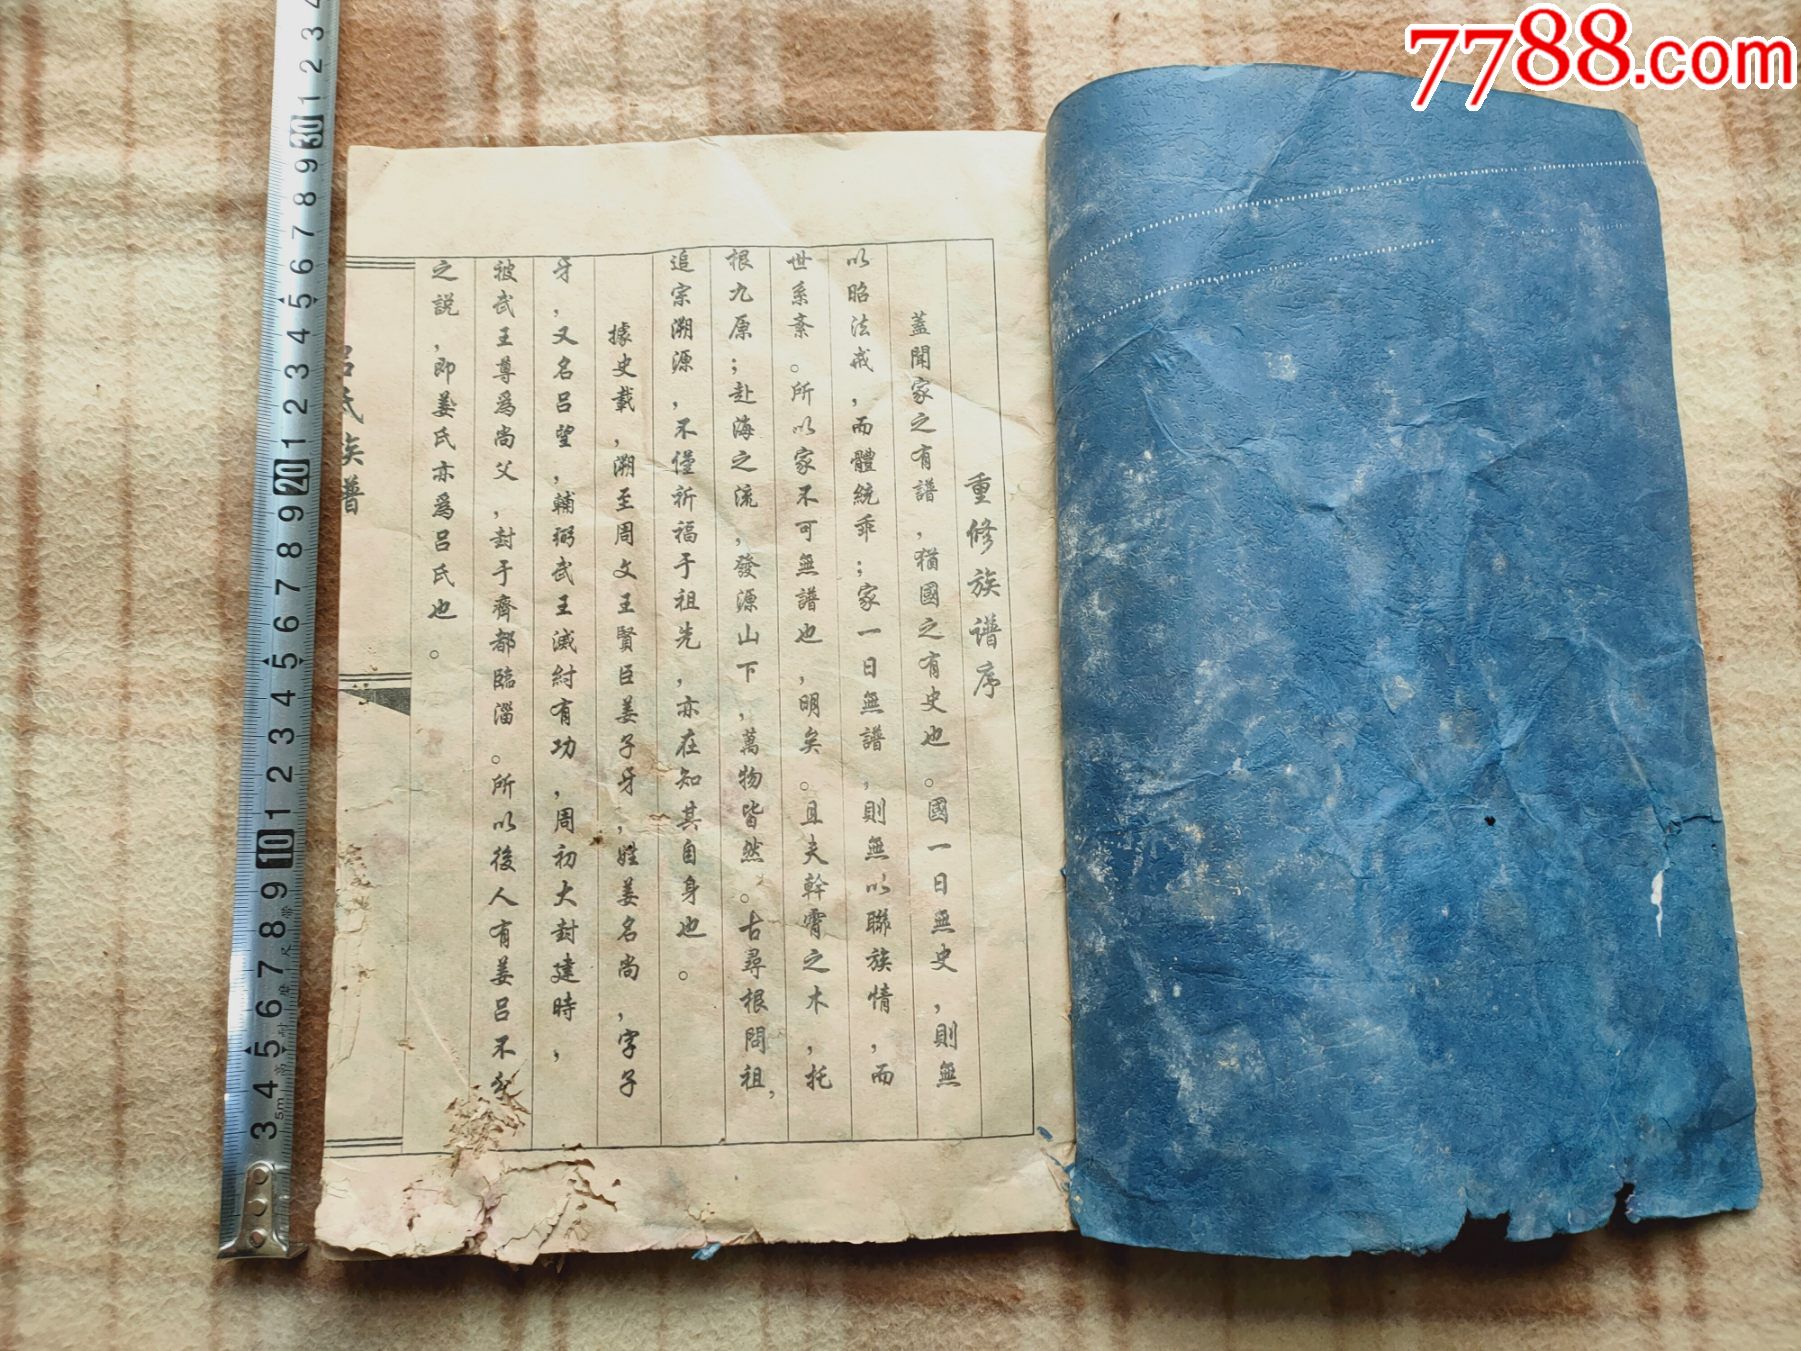 7788.com
重修族譜序
蓋聞家之有譜，猶國之有史也。國一日無史，則無
以昭法戒，而體統乖；家一日無譜，則無以聯族情，而
世系紊。所以家不可無譜也，明矣。且夫幹霄之木，托
根九原；赴海之流，發源山下，萬物皆然。古尋根問祖，
追宗溯源，不僅祈福于祖先，亦在知其自身也。
據史載，溯至周文王賢臣姜子牙，姓姜名尚，字子
牙，又名吕望，輔弼武王滅紂有功，周初大封建時，
被武王尊爲尚父，封于齊都臨淄。所以後人有姜吕不
之説，即姜氏亦爲吕氏也。
吕氏族譜
3 4 5 6 7 8 9 10 1 2 3 4 5 6 7 8 9 20 1 2 3 4 5 6 7 8 9 30 1 2 3
5m